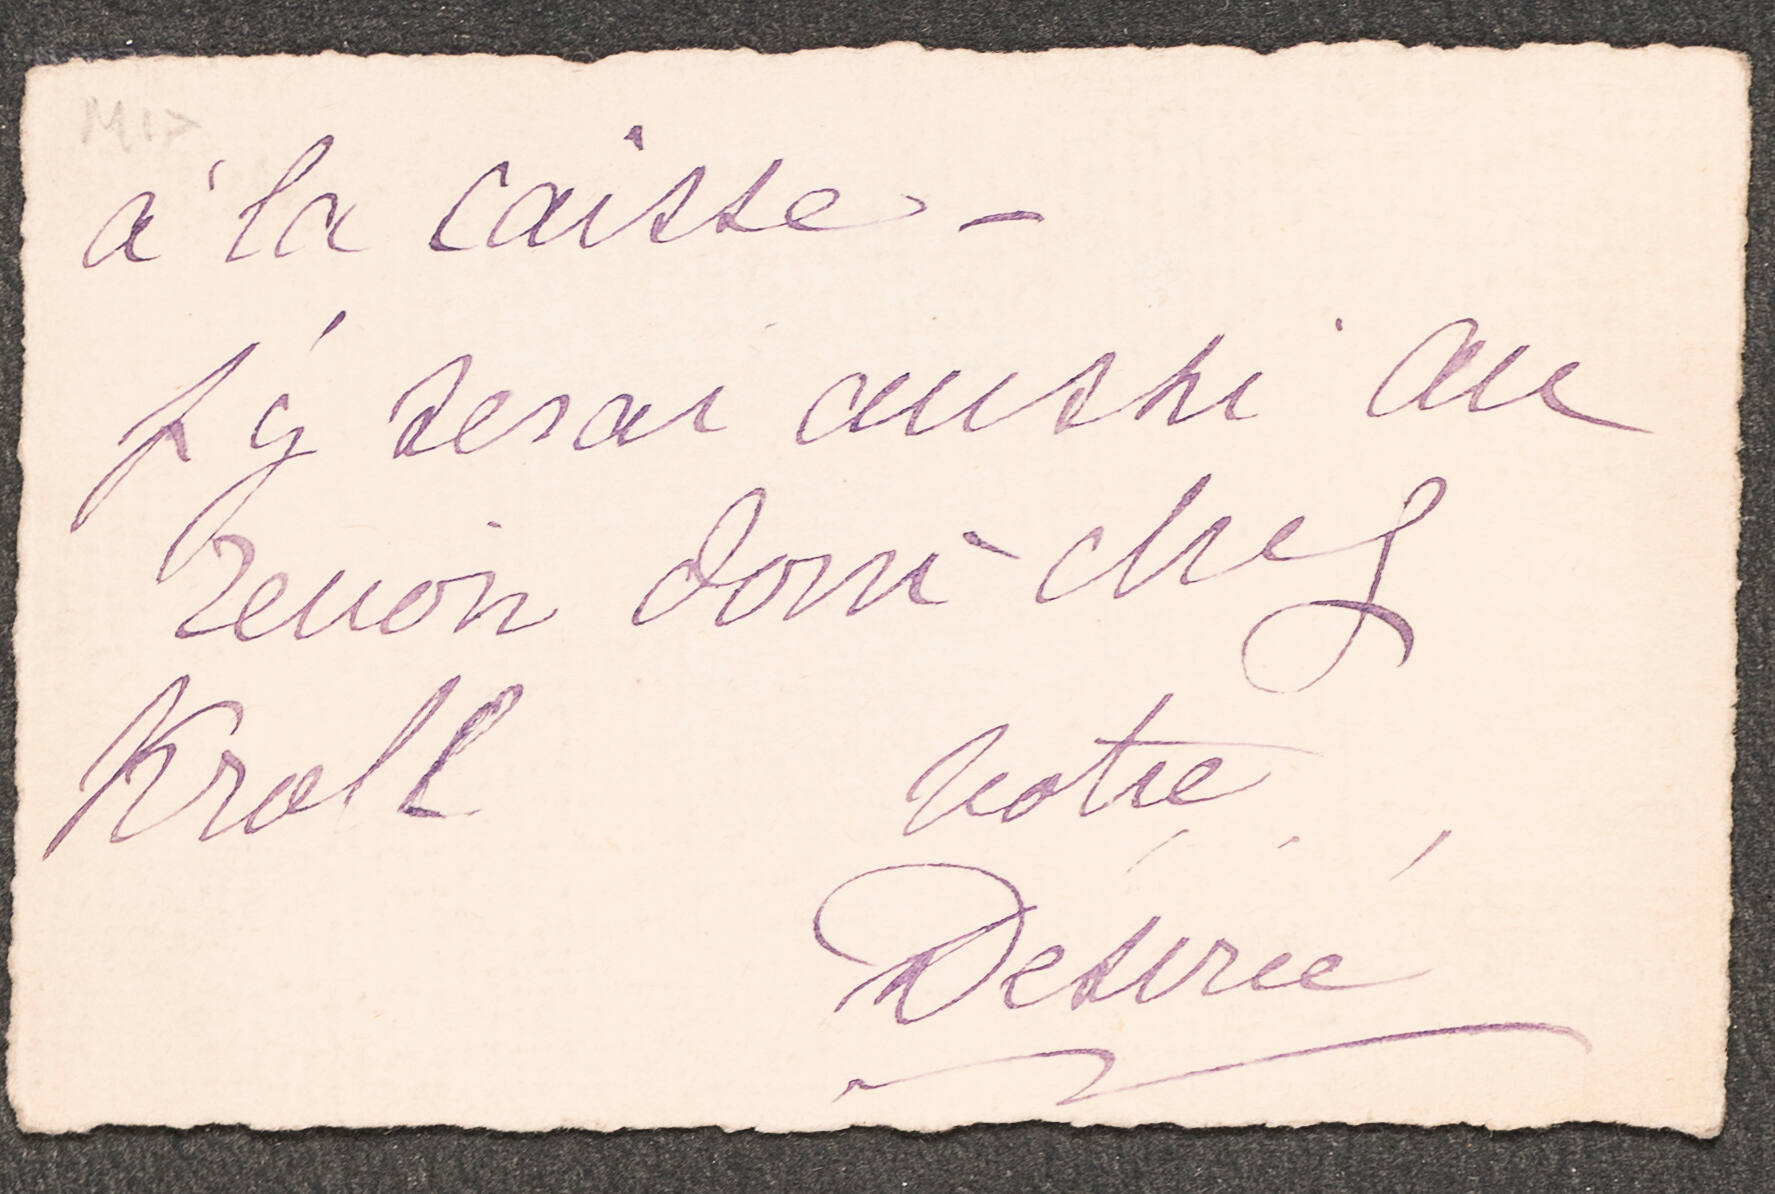 à la caisse –
J'y serai aussi au
revoir donc chez
Kroll votre
Désirée